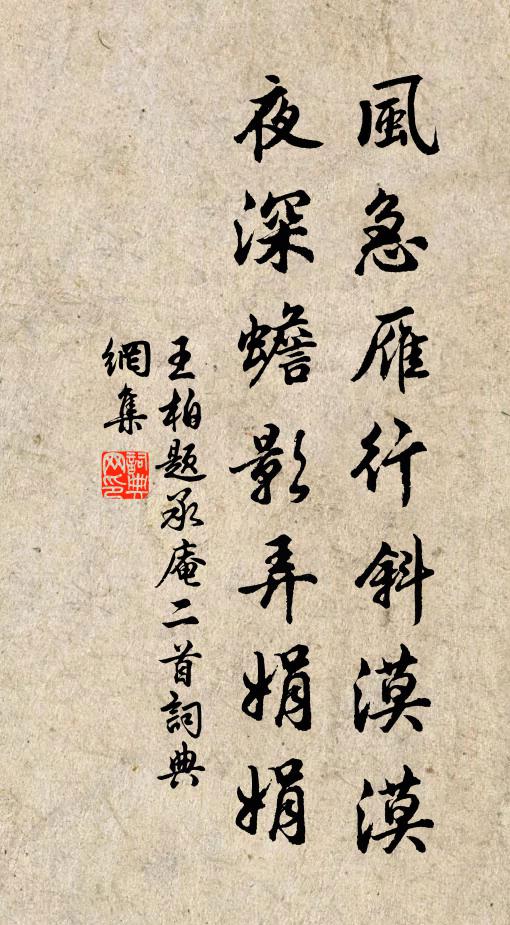 風急雁行斜漠漠
夜深蟾影弄娟娟
王柏題承庵二首詞典
網集
詞典
网印